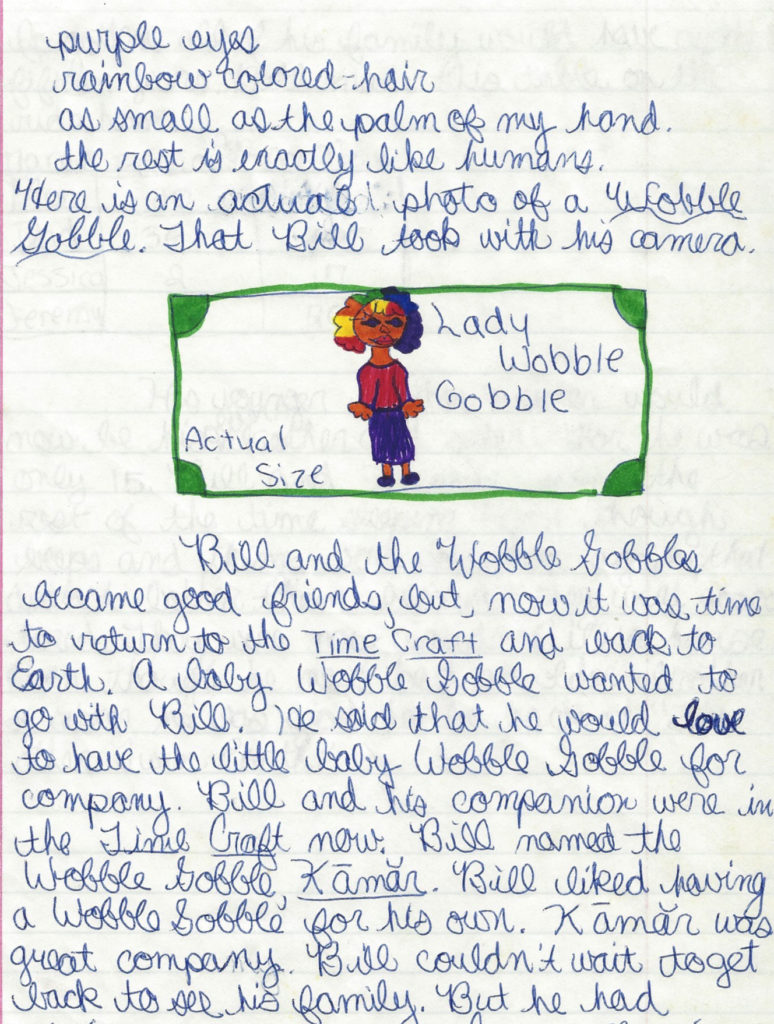 purple eyes
rainbow colored-hair
as small as the palm of my hand.
the rest is exactly like humans.
Here is an actual photo of a Wobble
Gobble. That Bill took with his camera.
Lady
Wobble
Gobble
Actual
Size
Bill and the Wobble Gobbles
became good friends, but, now it was time
to return to the Time Craft and back to
Earth. A baby Wobble Gobble wanted to
go with Bill. He said that he would love
to have the little baby Wobble Gobble for
company. Bill and his companion were in
the Time Craft now. Bill named the
Wobble Gobble, Kāmăr. Bill liked having
a Wobble Gobble for his own. Kāmăr was
great company. Bill couldn't wait to get
back to see his family. But he had